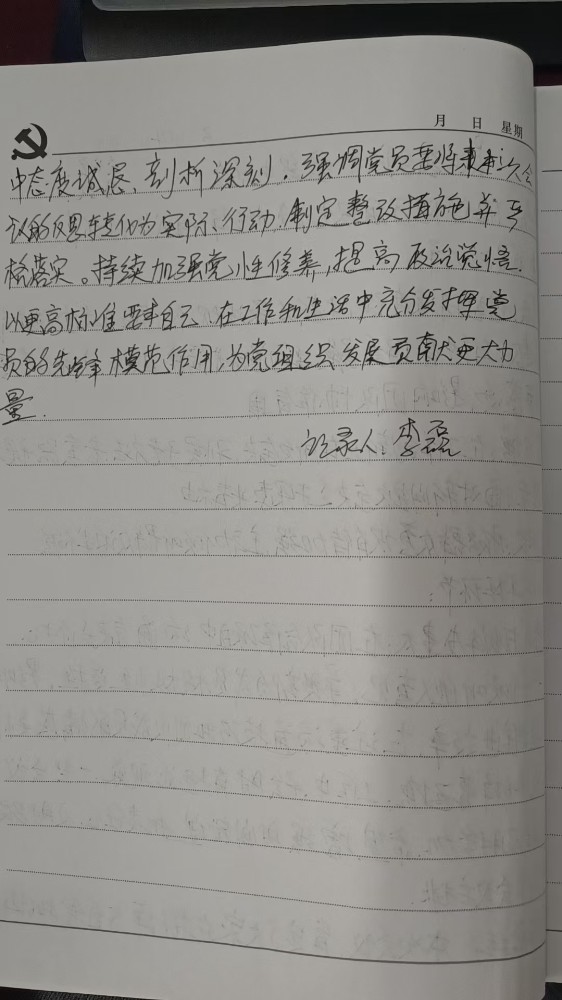 月 日 星期
中态度诚恳、剖析深刻。强调党员要将本次会
议的反思转化为实际行动.制定整改措施并严
格落实。持续加强党性修养,提高政治觉悟.
以更高标准要求自己 在工作和生活中充分发挥党
员的先锋模范作用,为党组织发展贡献更大力
量.
记录人:李磊